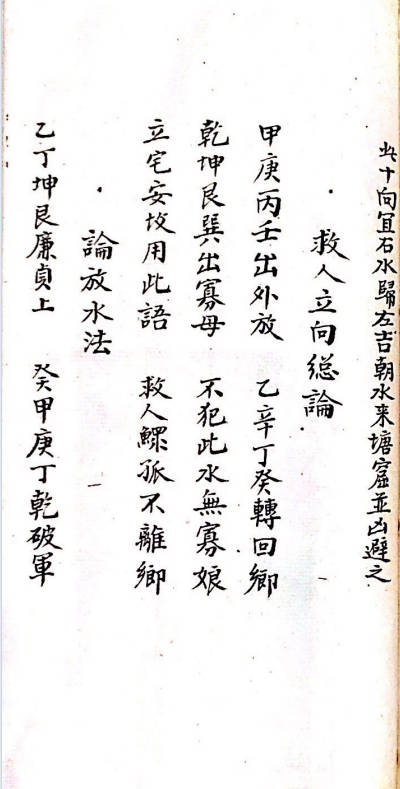 此十向宜右水歸左吉朝水来塘窟並凶避之
救人立向総論
甲庚丙壬出外放 乙辛丁癸轉回鄉
乾坤艮巽出寡母 不犯此水無寡娘
立宅安坟用此語 救人鰥孤不離鄉
論放水法
乙丁坤艮廉貞上 癸甲庚丁乾破軍